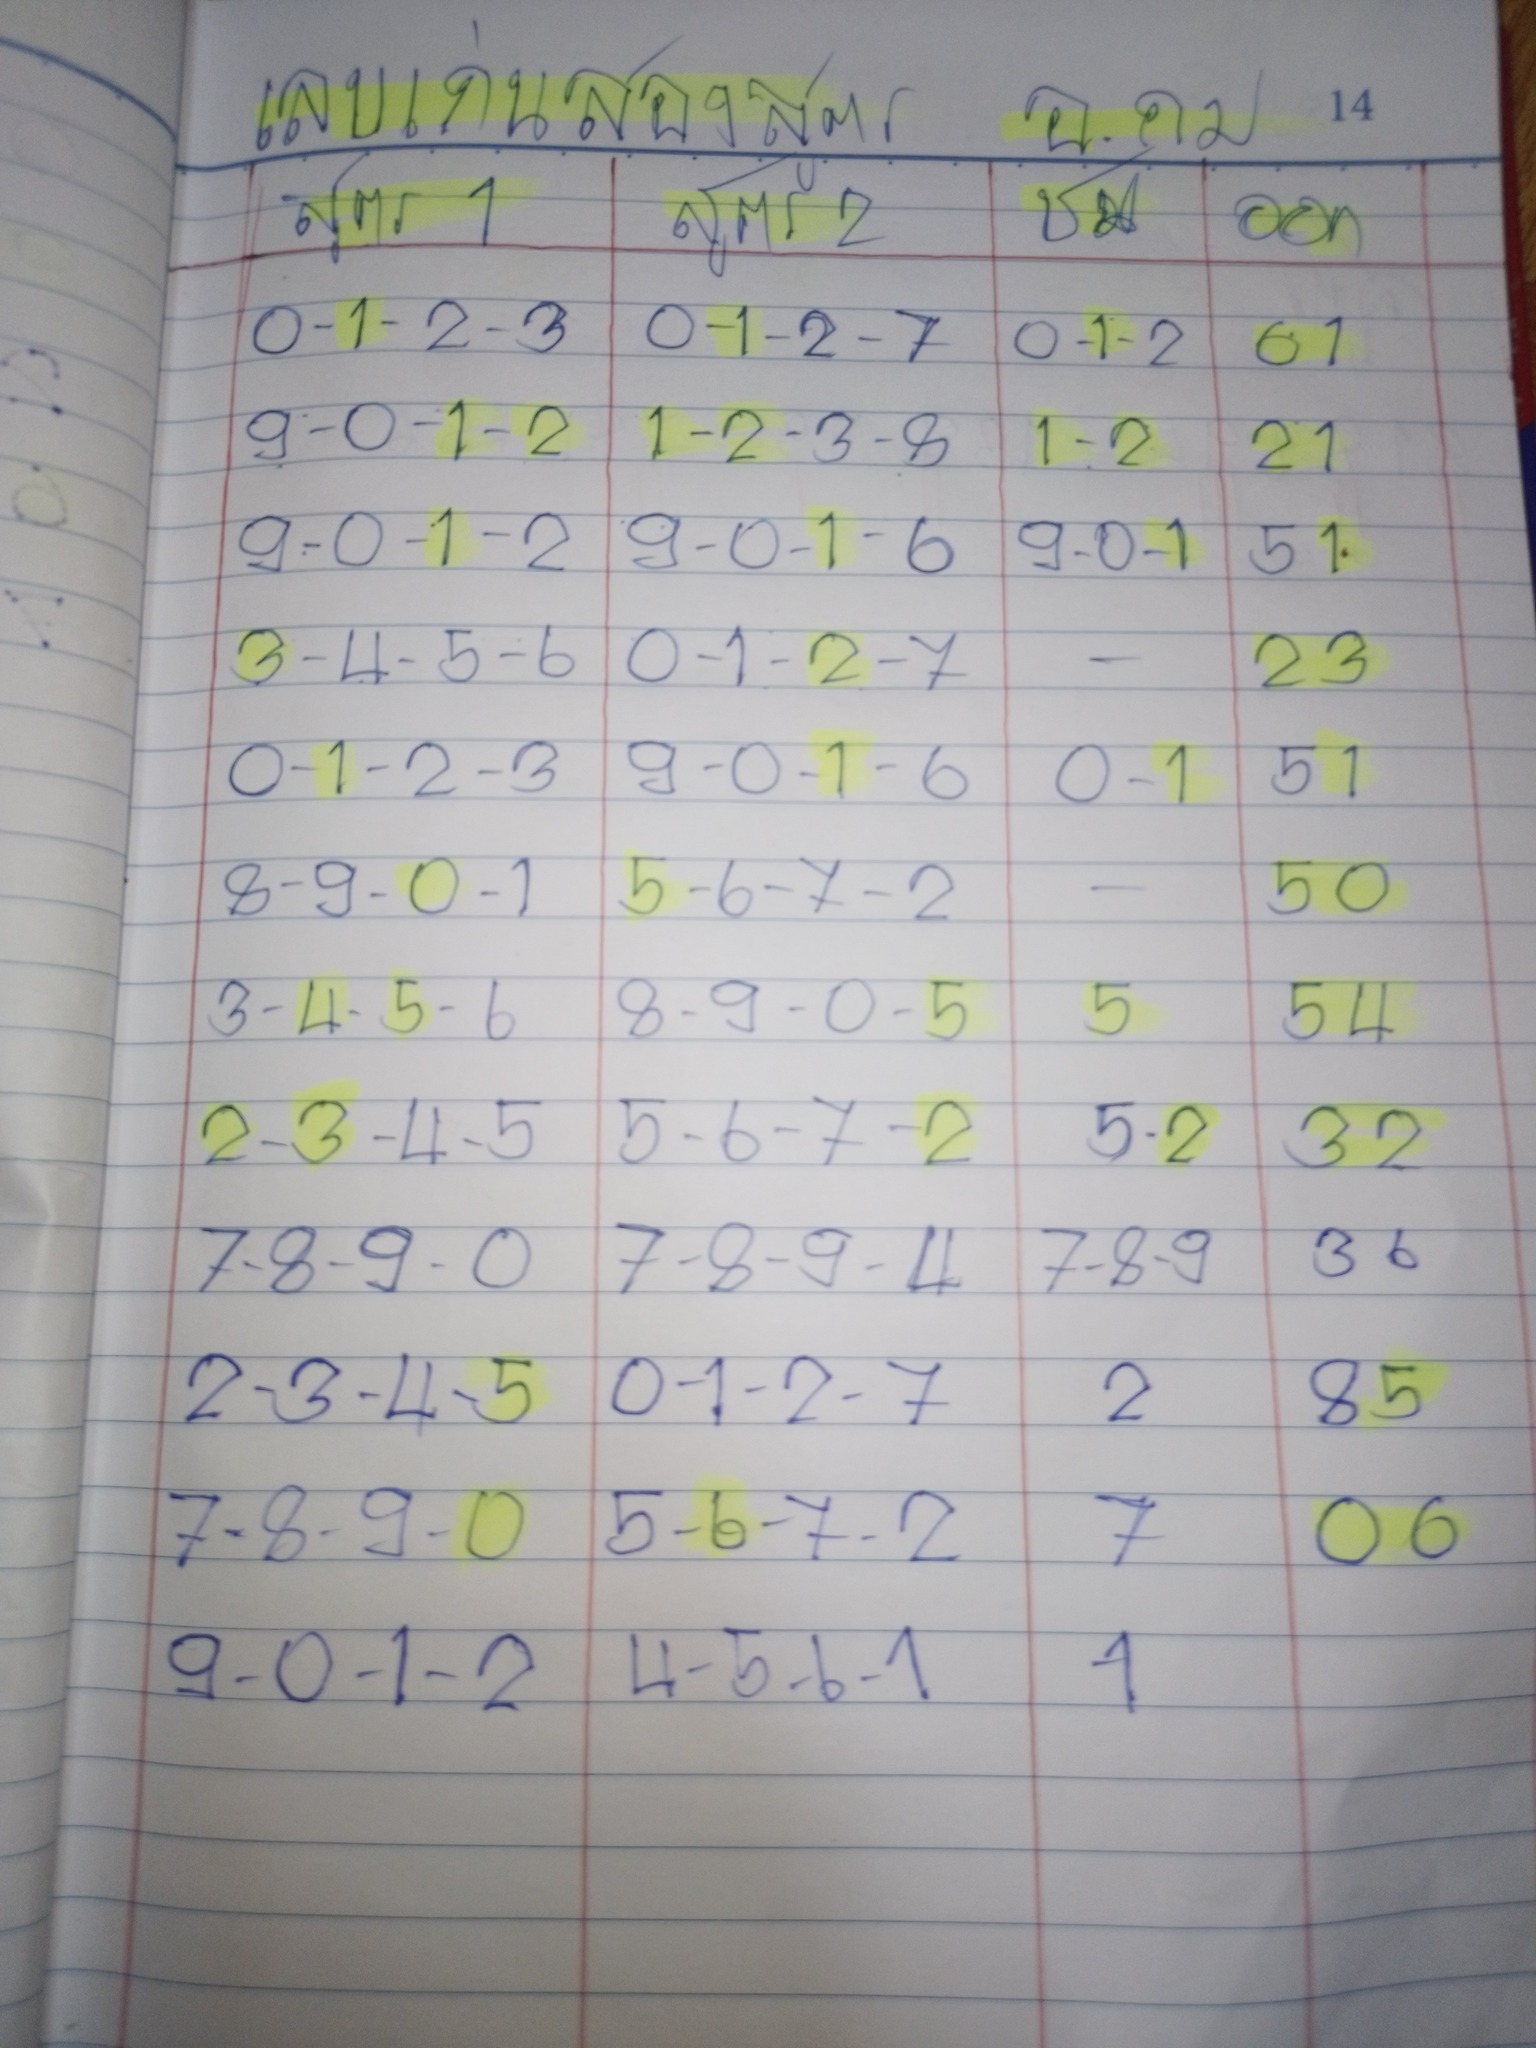 เลขเด่นสองสูตร อ.คม 14
สูตร 1 สูตร 2 ชน ออก
0-1-2-3 0-1-2-7 0-1-2 61
9-0-1-2 1-2-3-8 1-2 21
9-0-1-2 9-0-1-6 9-0-1 51
3-4-5-6 0-1-2-7 - 23
0-1-2-3 9-0-1-6 0-1 51
8-9-0-1 5-6-7-2 - 50
3-4-5-6 8-9-0-5 5 54
2-3-4-5 5-6-7-2 5-2 32
7-8-9-0 7-8-9-4 7-8-9 36
2-3-4-5 0-1-2-7 2 85
7-8-9-0 5-6-7-2 7 06
9-0-1-2 4-5-6-1 1